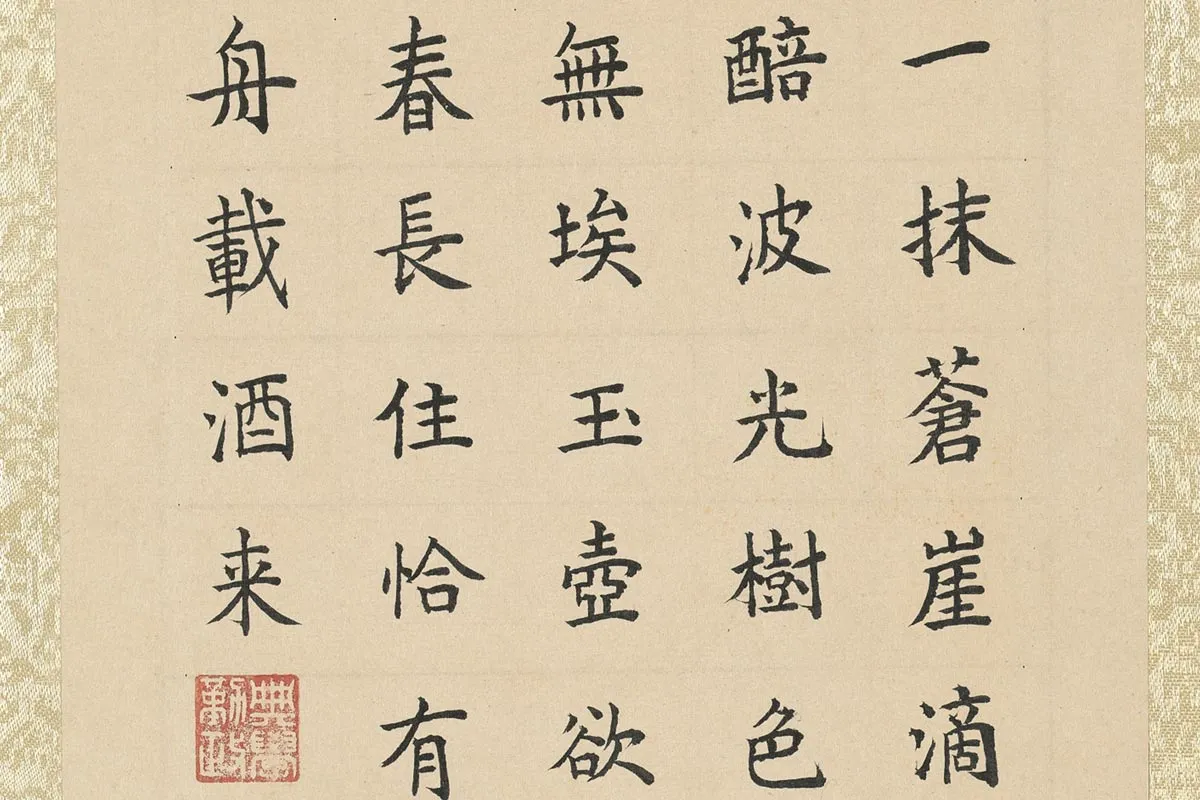 一抹蒼崖滴
醅波光樹色
無埃玉壺欲
春長住恰有
舟載酒来
典學勤政